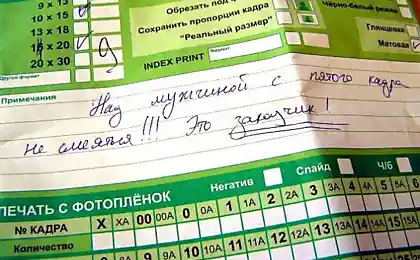 9 x 13
10 x 15
13 x 18
15 x 20
20 x 30
9
Другой формат
Обрезать под
Сохранить пропорции кадра
"Реальный размер"
INDEX PRINT
Чёрно-белый
Глянцевая
Матовая
Примечания
Над мужчиной с пятого кадра
не смеяться!!! Это заказчик!
ПЕЧАТЬ С ФОТОПЛЁНОК
Негатив
Слайд
Ч/б
№ КАДРА X XA 00 00A 0 0A 1 1A 2 2A 3 3A 4 4A 5 5A 6
Количество
9A 10 10A 11 11A 12 12A 13 13A 14 14A 15 15A
№ КАДРА